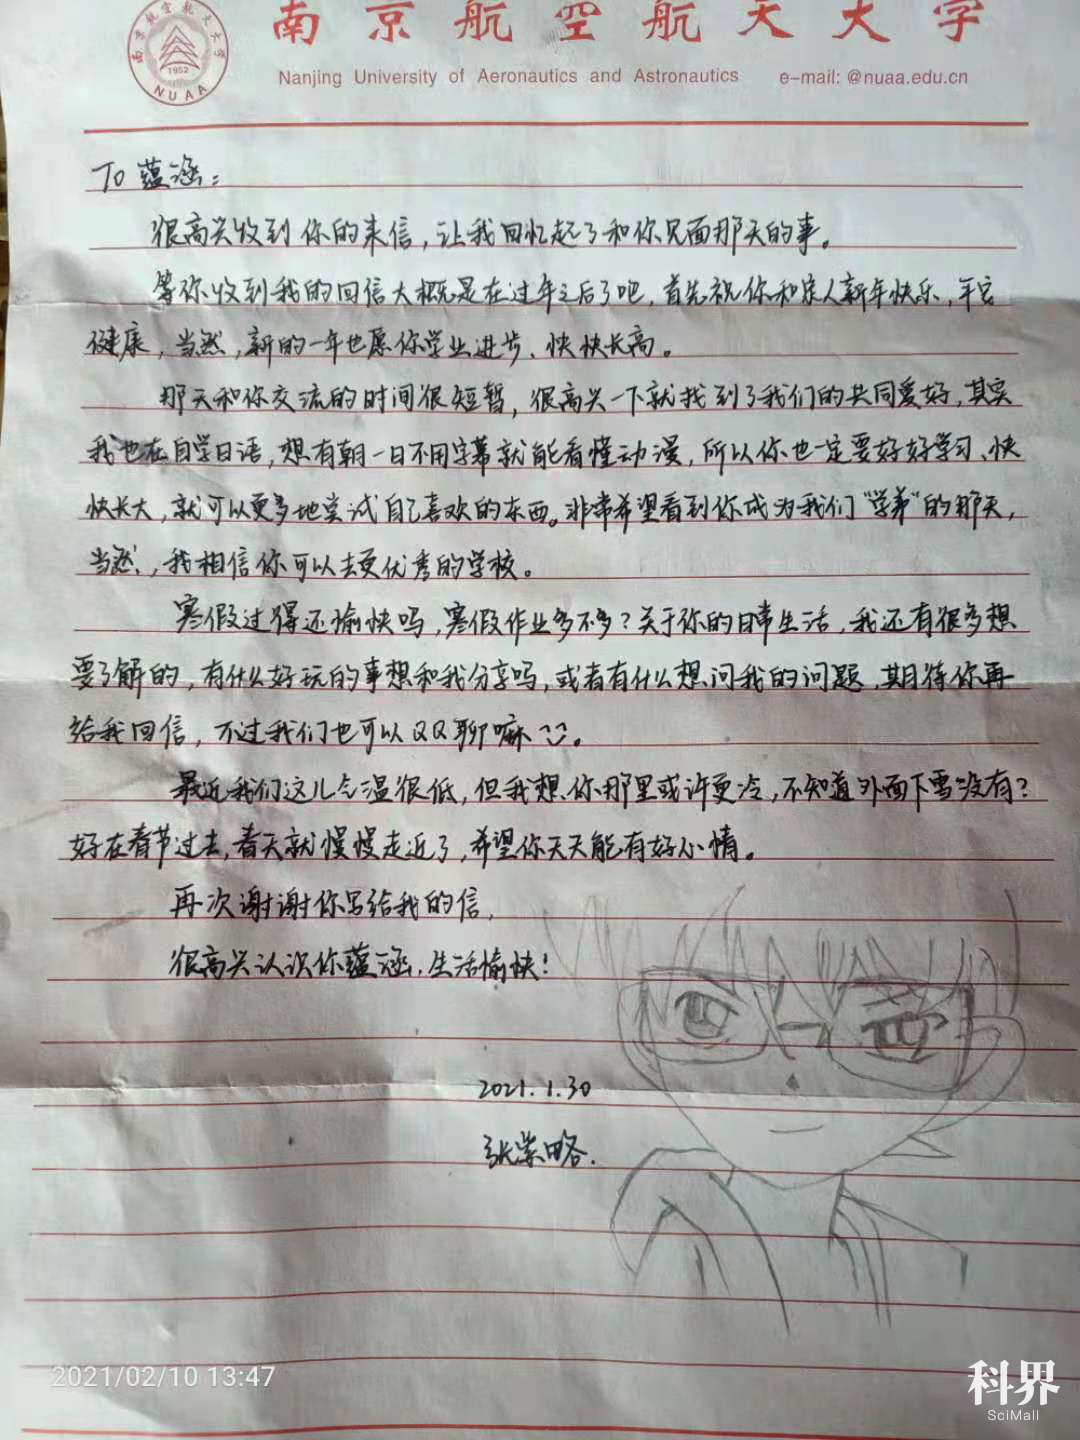 南京航空航天大学
南京航空航天大学
1952
NUAA
Nanjing University of Aeronautics and Astronautics e-mail: @nuaa.edu.cn
To 蕴涵：
很高兴收到你的来信，让我回忆起了和你见面那天的事。
等你收到我的回信大概是在过年之后了吧，首先祝你和家人新年快乐，平安
健康，当然，新的一年也愿你学业进步、快快长高。
那天和你交流的时间很短暂，很高兴一下就找到了我们的共同爱好，其实
我也在自学日语，想有朝一日不用字幕就能看懂动漫，所以你也一定要好好学习、快
快长大，就可以更多地尝试自己喜欢的东西。非常希望看到你成为我们“学弟”的那天，
当然，我相信你可以去更优秀的学校。
寒假过得还愉快吗，寒假作业多不多？关于你的日常生活，我还有很多想
要了解的，有什么好玩的事想和我分享吗，或者有什么想问我的问题，期待你再
给我回信，不过我们也可以QQ聊嘛。
最近我们这儿气温很低，但我想你那里或许更冷，不知道外面下雪没有？
好在春节过去，春天就慢慢走近了，希望你天天能有好心情。
再次谢谢你写给我的信，
很高兴认识你蕴涵，生活愉快！
2021.1.30
张崇略.
2021/02/10 13:47
科界
SciMall